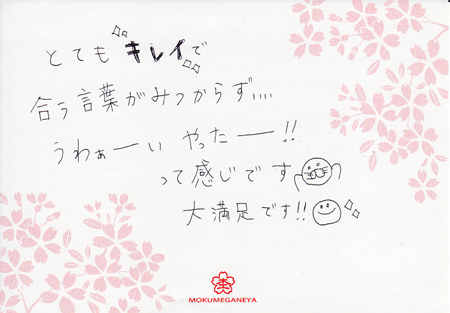 とても キレイで
合う言葉がみつからず....
うわぁーい やったー!!
って感じです
大満足です!!
MOKUMEGANEYA